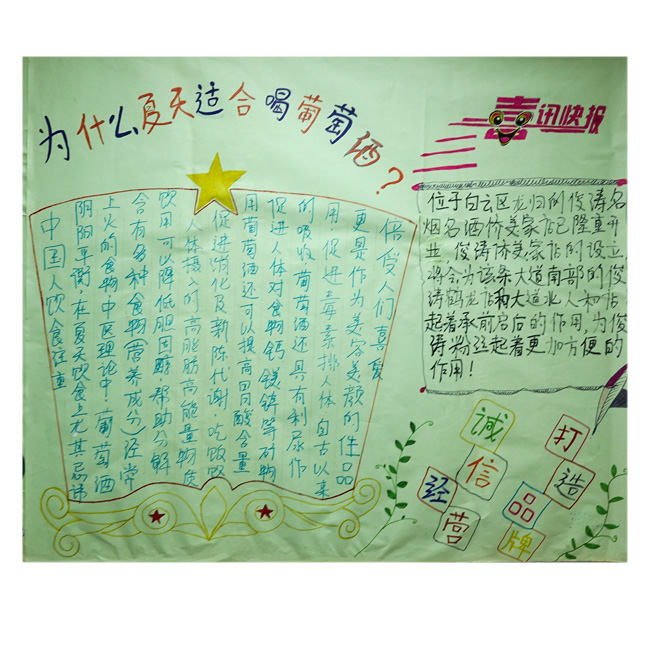 为什么夏天适合喝葡萄酒?
中国人饮食注重
阴阳平衡.在夏天饮食上尤其忌讳
上火的食物.中区理论中,葡萄酒
含有多种食物(营养成分)经常
饮用可以降低胆固醇 帮助分解
人体摄入的高脂肪高能量物质
促进消化及新陈代谢.吃饭饮
用葡萄酒还可以提高胃酸含量
促进人体对食物钙 镁锌等矿物
的吸收.葡萄酒还具有利尿作
用.促进毒素排人体 自古以来
更是作为美容美颜的佳品
倍受人们喜爱
喜讯快报
位于白云区龙归的俊涛名
烟名酒侨美家店已隆重开
业.俊涛侨美家店的设立,
将会为该条大道南部的俊
涛鹤龙店和大道北人和店
起着承前启后的作用,为俊
涛粉丝起着更加方便的
作用!
减信经营
打造品牌